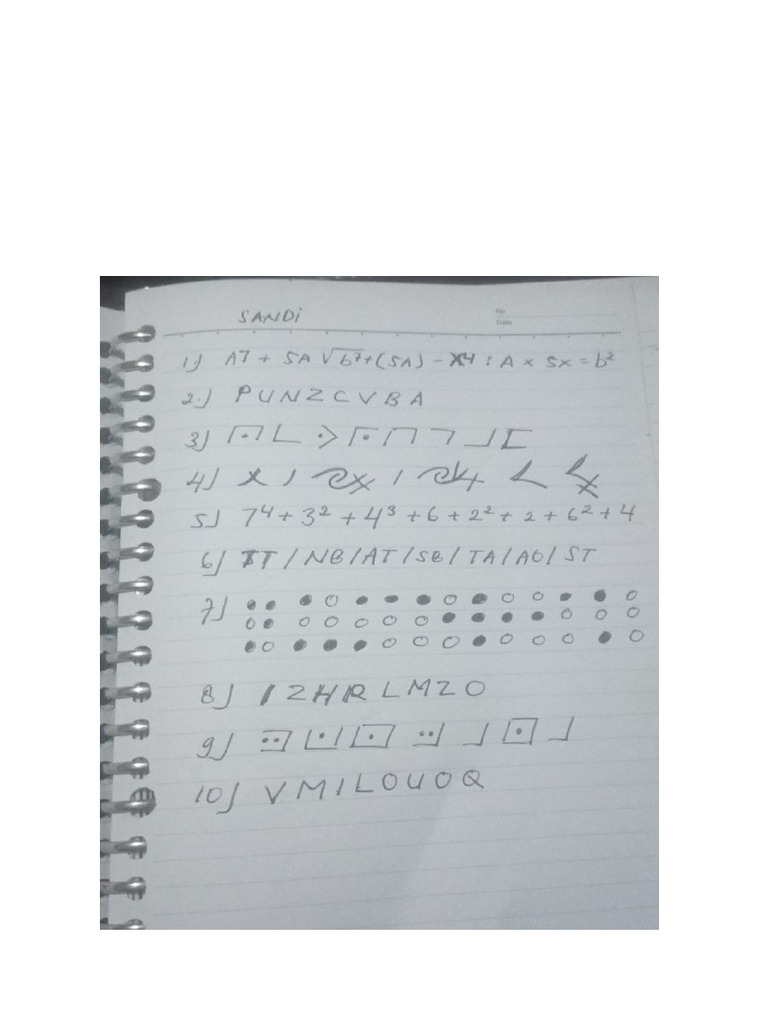 SANDi
No
Date
1) A7 + SA √b7+(SA) - X4 : A x 5x = b²
2.) PUNZCVBA
3)
4)
5) 7⁴ + 3² + 4³ + 6 + 2² + 2 + 6² + 4
6) TT / NB / AT / SB / TA / AO / ST
7)
8) IZHRLMZO
9)
10) VMILOUOQ